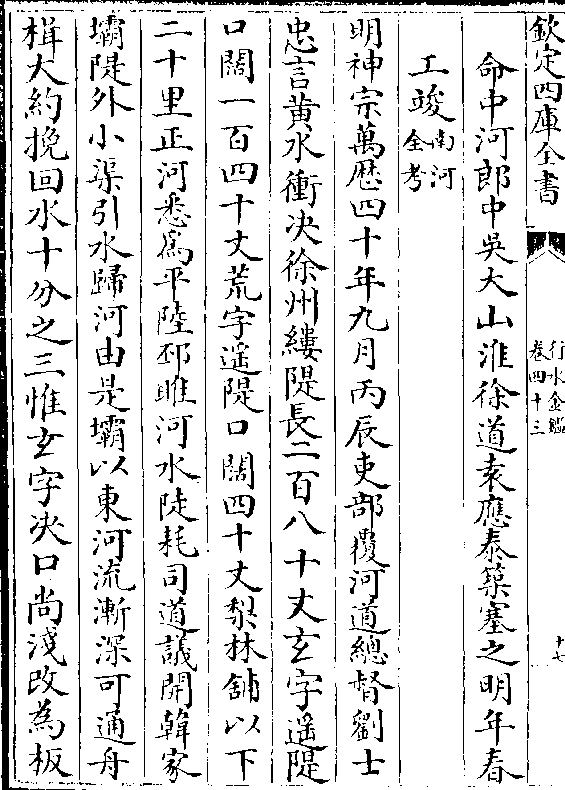 欽定四庫全書
行水金鑑
卷四十三
十七
命中河郎中吳大山淮徐道袁應泰築塞之明年春
工竣南河
全考
明神宗萬歷四十年九月丙辰吏部覆河道總督劉士
忠言黄水衝决徐州縷隄長二百八十丈玄字遥隄
口闊一百四十丈荒字遥隄口闊四十丈梨林舖以下
二十里正河悉為平陸邳睢河水陡耗司道議開韓家
壩隄外小渠引水歸河由是壩以東河流漸深可通舟
楫大約挽回水十分之三惟玄字决口尚淺改為板